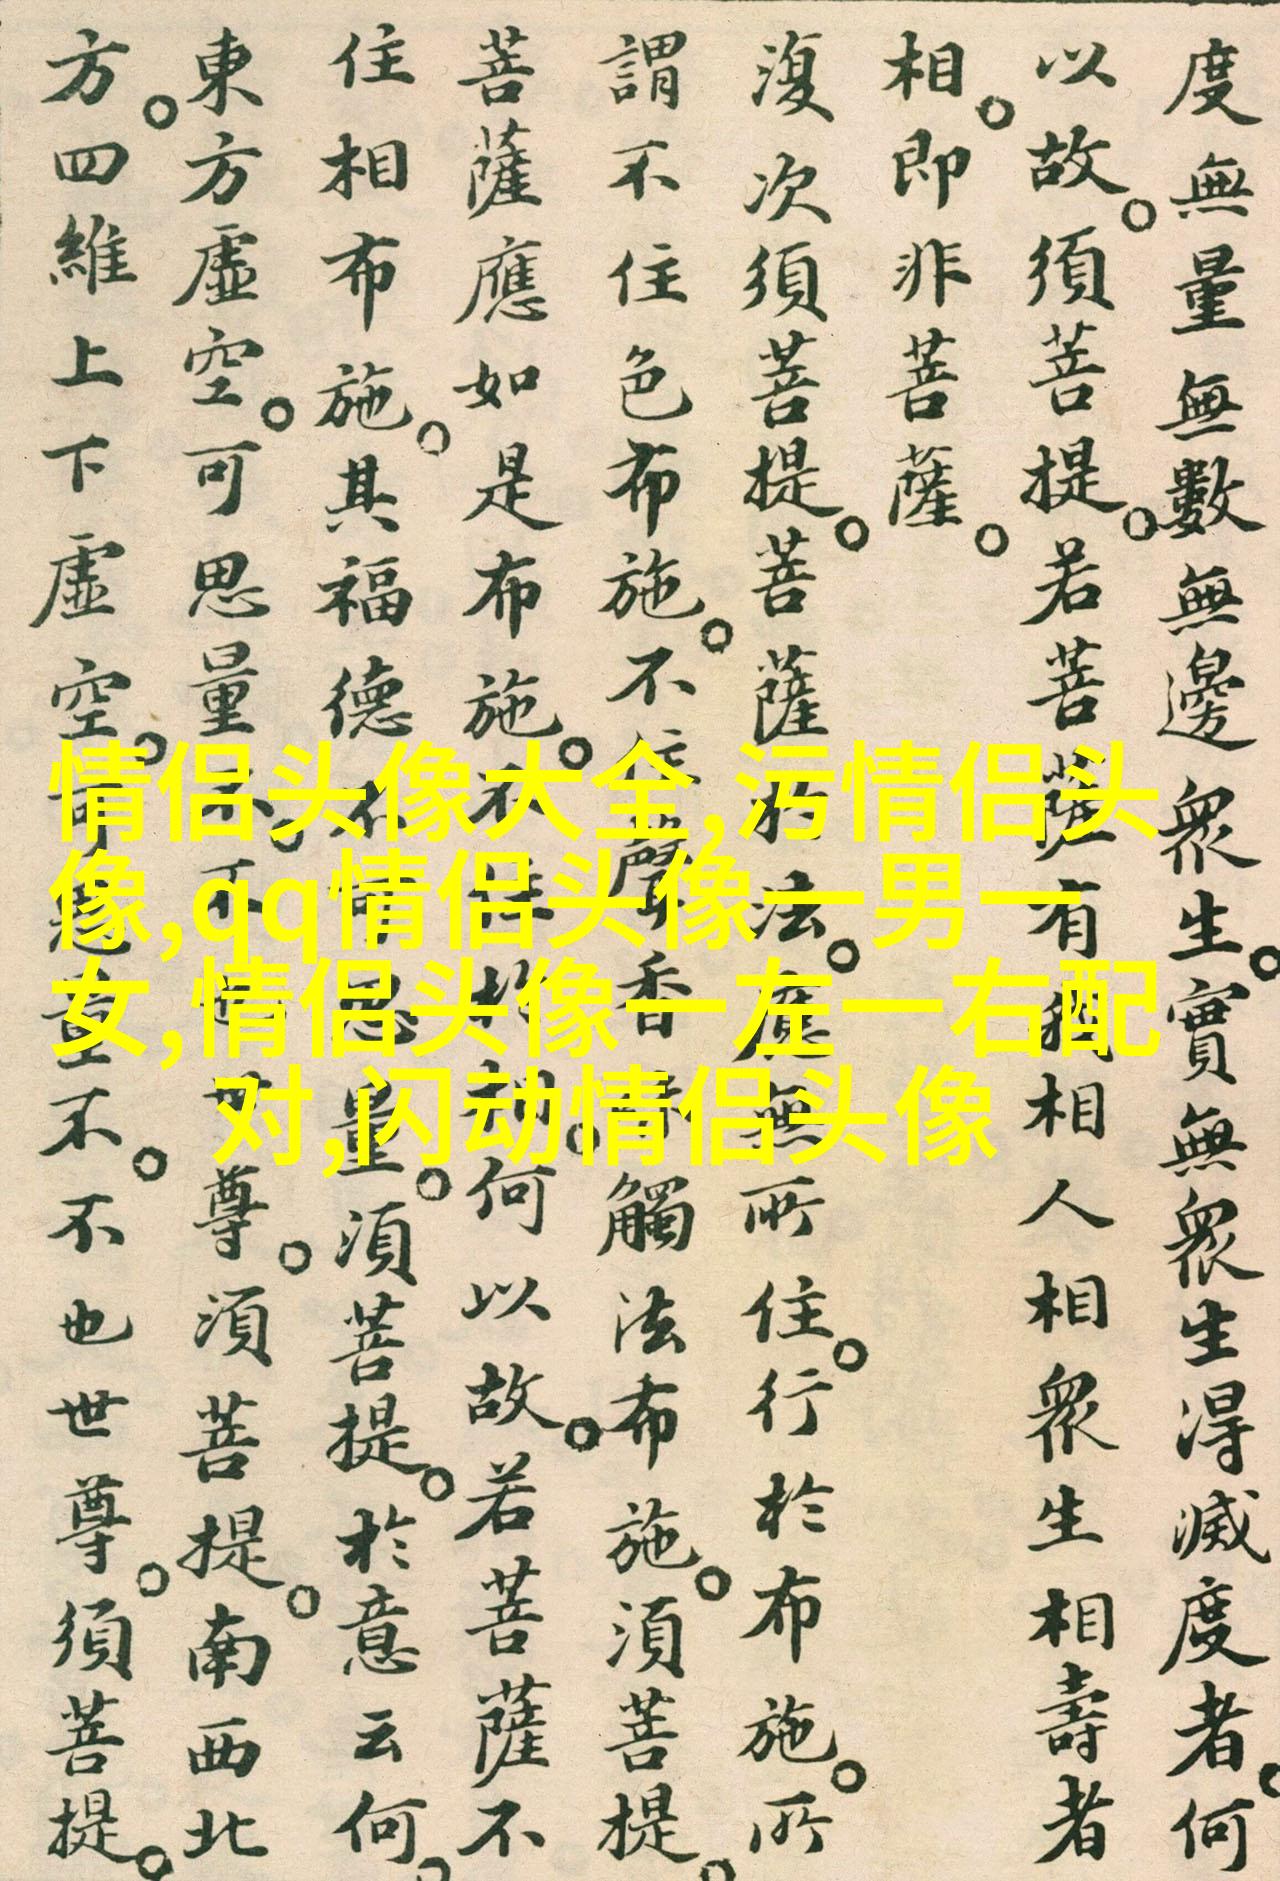 度無量無數無邊衆生。實無衆生得滅度者。何
以故。須菩提。若菩薩有我相人相衆生相壽者
相。即非菩薩。
復次須菩提。菩薩於法。應無所住。行於布施。所
謂不住色布施。不住聲香味觸法布施。須菩提。
菩薩應如是布施。不住於相。何以故。若菩薩不
住相布施。其福德不可思量。須菩提。於意云何。
東方虛空。可思量不。不也世尊。須菩提。南西北
方。四維上下虛空。可思量不。不也世尊。須菩提。
情侣头像大全,污情侣头
像,qq情侣头像一男一
女,情侣头像一左一右配
对,闪动情侣头像